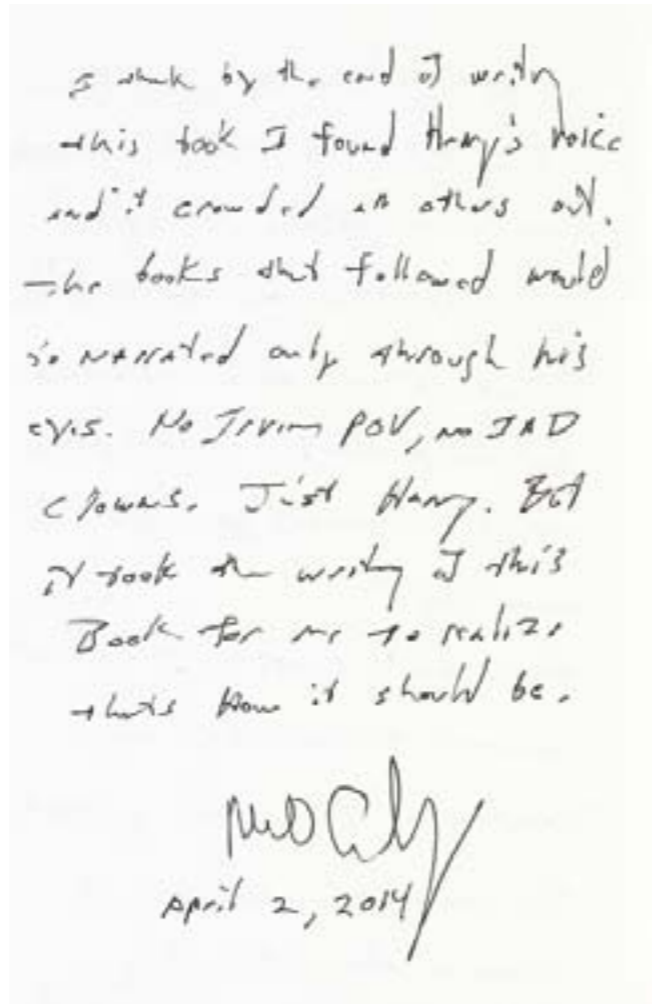 I think by the end of writing
this book I found Harry's voice
and it crowded all others out.
The books that followed would
be narrated only through his
eyes. No Irving POV, no IAD
clowns. Just Harry. But
it took the writing of this
Book for me to realize
that's how it should be.
April 2, 2014